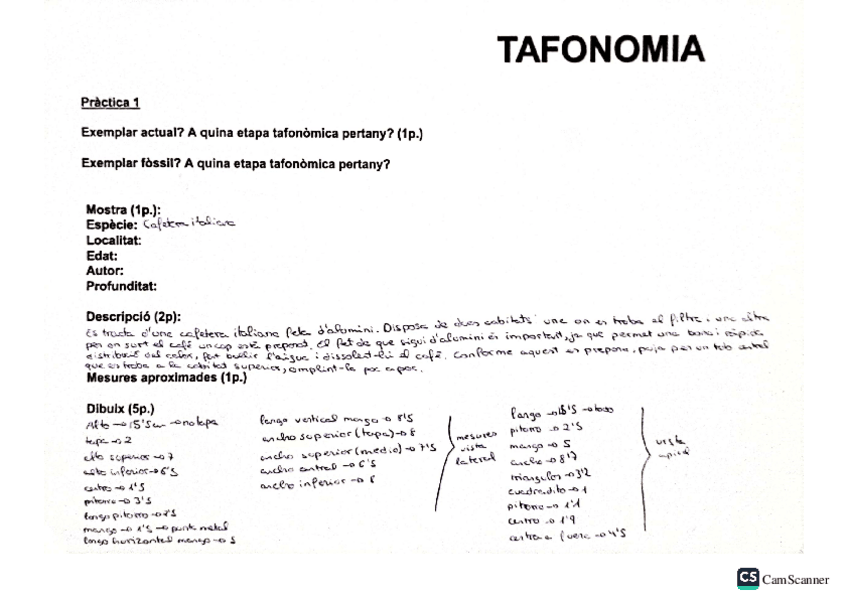 TAFONOMIA
Pràctica 1
Exemplar actual? A quina etapa tafonòmica pertany? (1p.)
Exemplar fòssil? A quina etapa tafonòmica pertany?
Mostra (1p.):
Espècie: Cafetera italiana
Localitat:
Edat:
Autor:
Profunditat:
Descripció (2p):
Es tracta d'una cafetera italiana feta d'alumini. Disposa de dues cabitats una on es troba el filtre i una altra
per on surt el café un cop està preparat. El fet de que sigui d'alumini és important, ja que permet una bona i ràpida
distribució del calor, fet bullir l'aigua i dissolent-hi el café. Conforme aquest es prepara, puja per un tub central
que es troba a la cabitat superior, omplint-la poc a poc.
Mesures aproximades (1p.)
Dibuix (5p.)
Alto → 15'5cm → no tapa
tapa → 2
alto superior → 7
alto inferior → 6'5
centro → 1'5
pitorro → 3'5
largo pitorro →
mango → 1'5 → punta metal
largo horizontal mango → 5
largo vertical mango → 8'5
ancho superior (tapa) → 8
ancho superior (medio) → 7'5
ancho central → 6'5
ancho inferior → 8
mesures
vista
lateral
largo → 15'5 →
pitorro → 2'5
mango → 5
ancho → 8'7
triangulos → 3'2
cuadradito → 1
pitorro → 1'1
centro → 1'9
centro a fuera → 4'5
vista
CS CamScanner